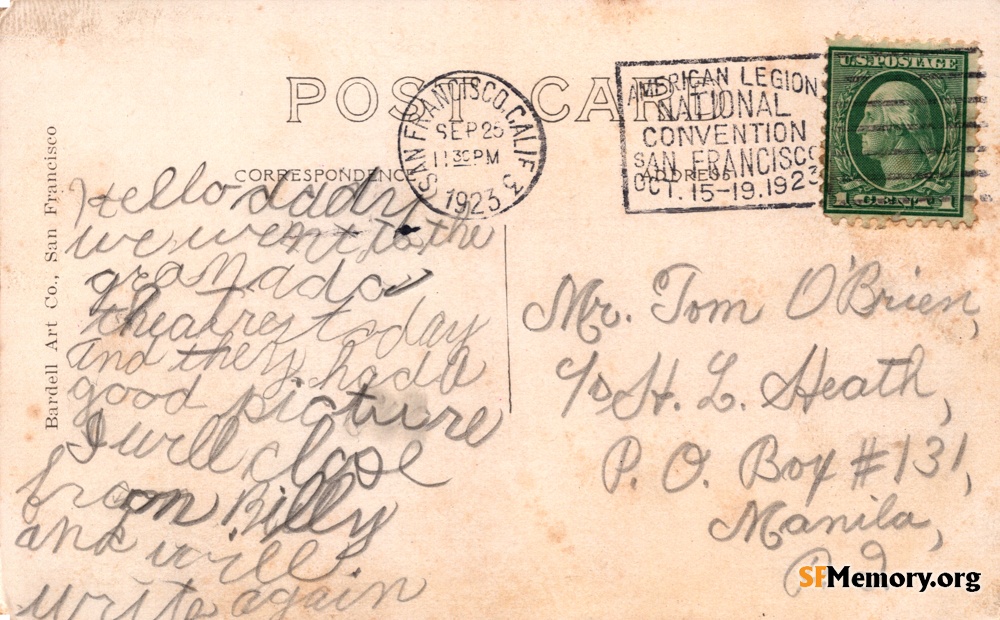 POST CARD
SAN FRANCISCO, CALIF. 3
SEP 25
11 30 PM
1923
AMERICAN LEGION
NATIONAL
CONVENTION
SAN FRANCISCO
OCT. 15-19. 1923
U.S. POSTAGE
1 CENT 1
CORRESPONDENCE
ADDRESS
Bardell Art Co., San Francisco
Hello dady
we went to the
granada
theatre today
and they had a
good picture
I will close
from Billy
and will
write again
Mr. Tom O'Brien,
c/o H. L. Heath,
P. O. Box #131,
Manila,
P. I.
SFMemory.org